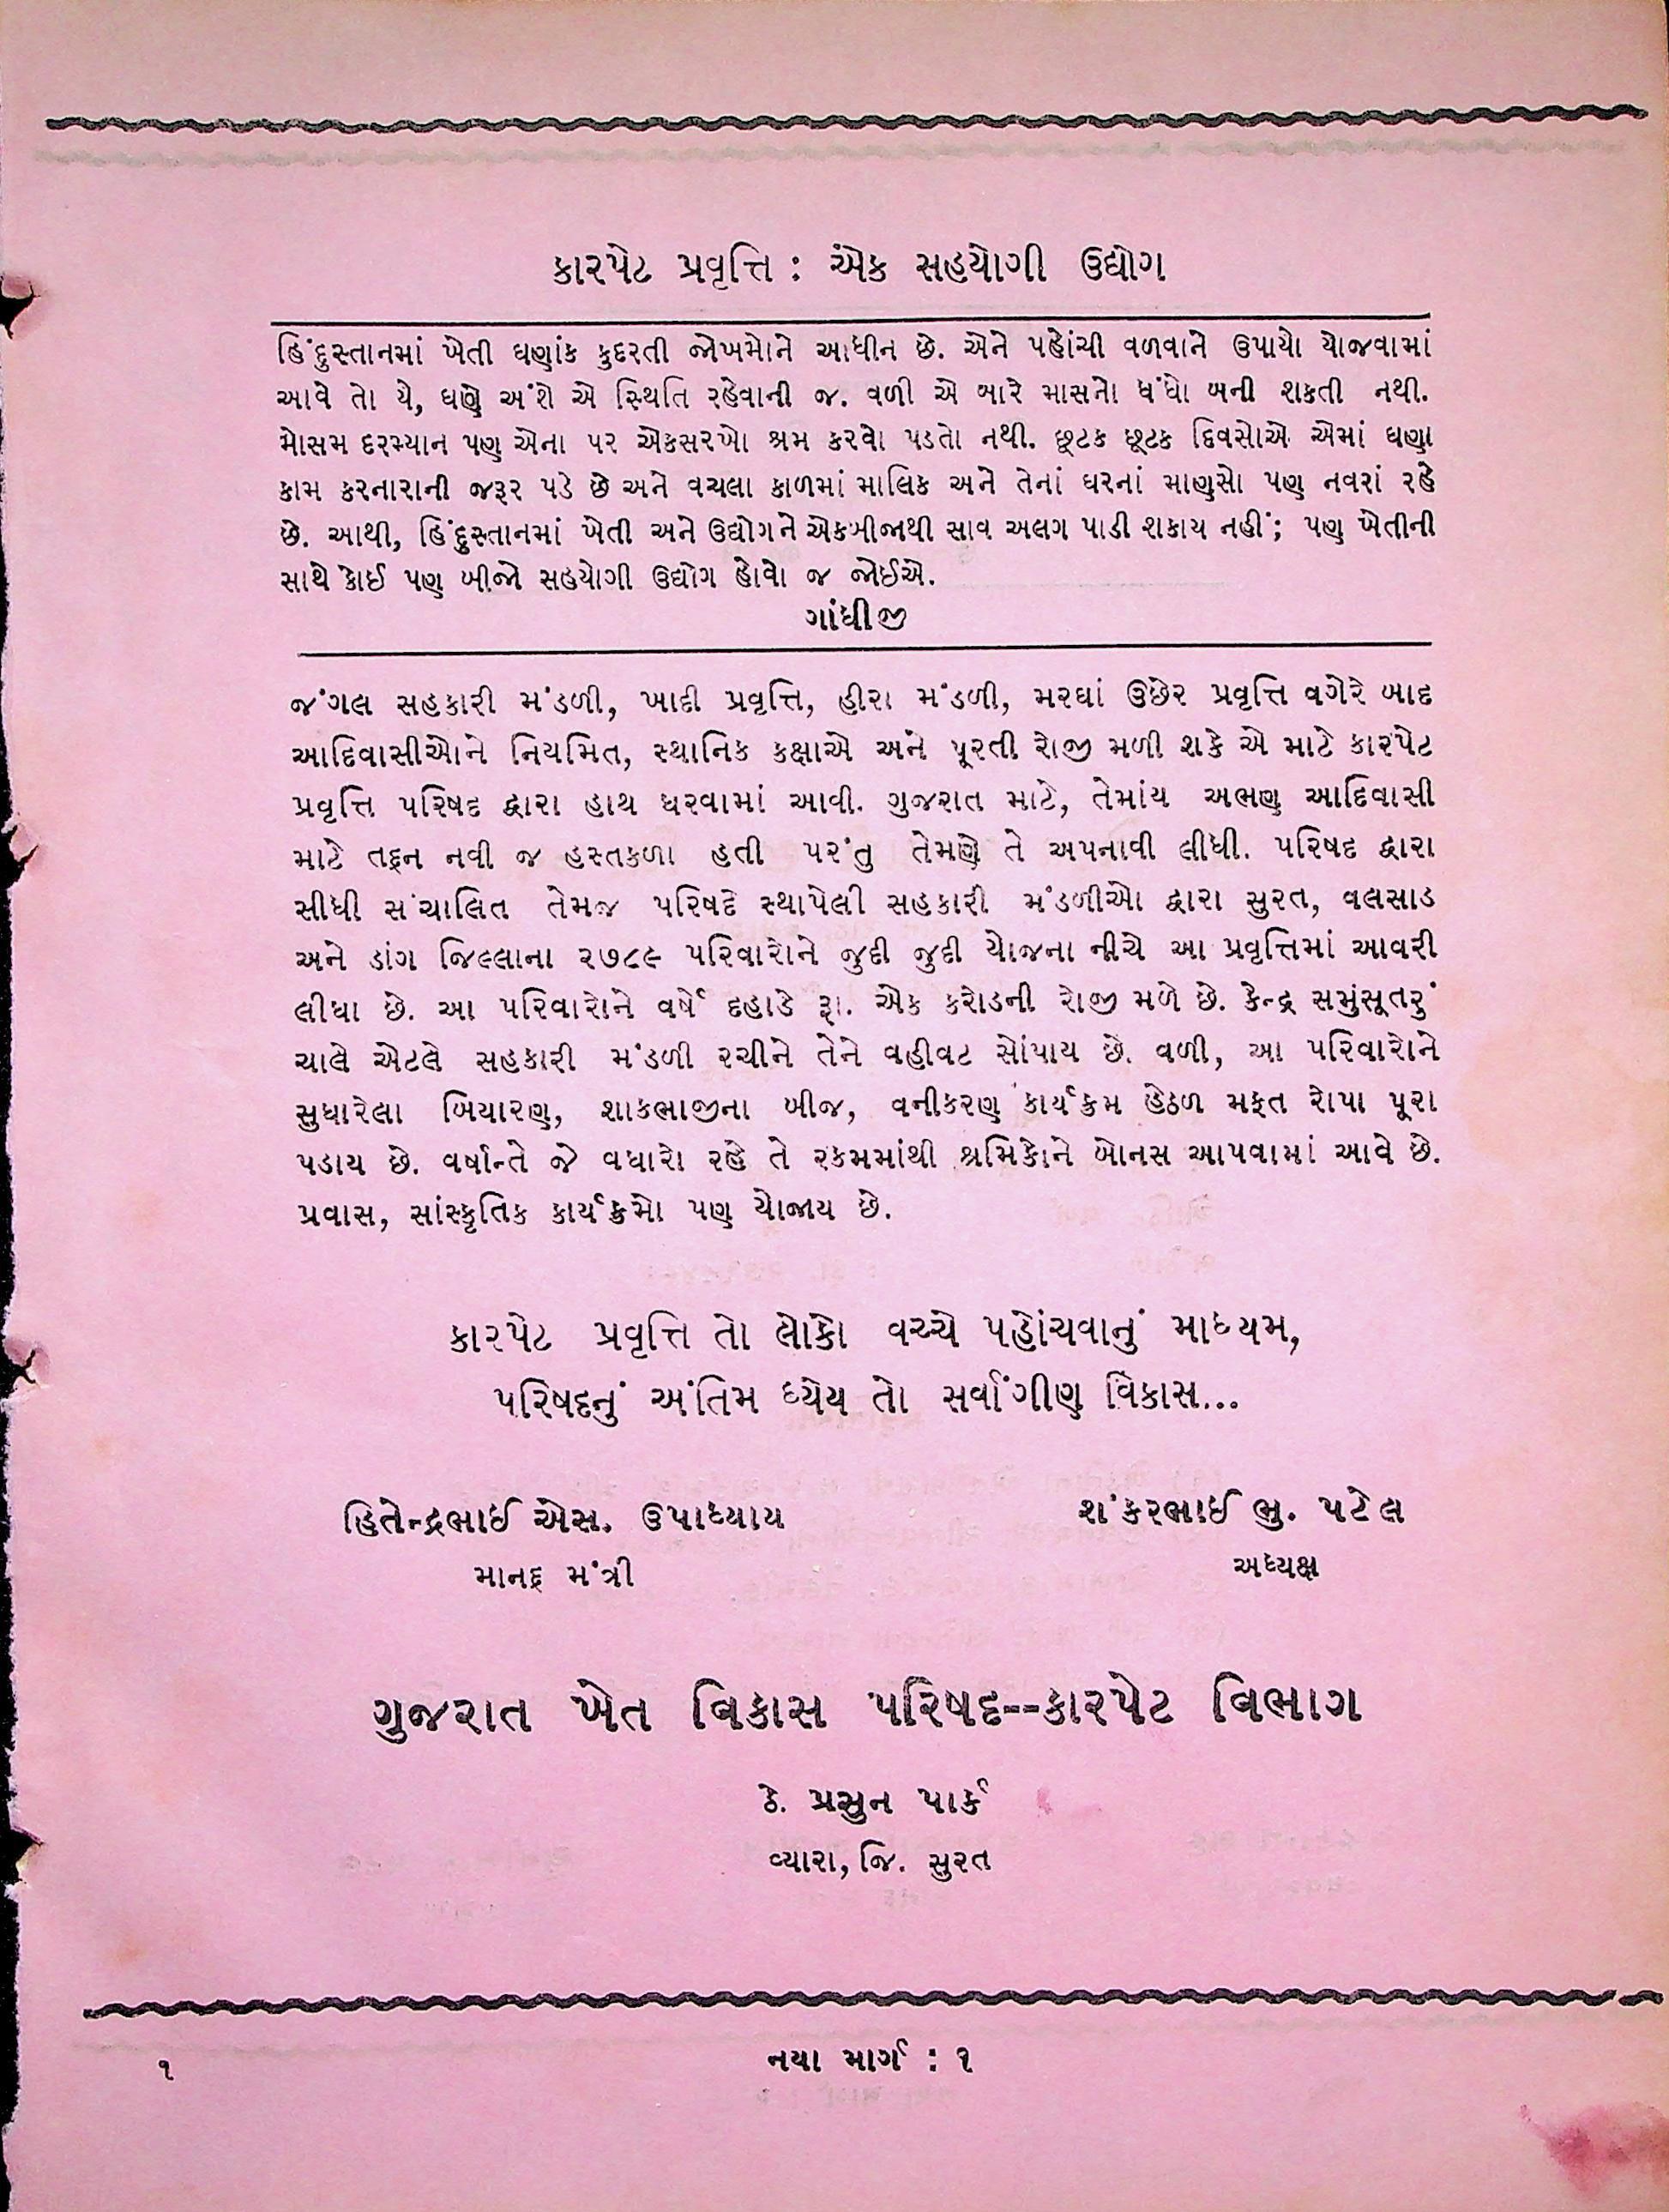 કારપેટ પ્રવૃત્તિ : એક સહયોગી ઉદ્યોગ
હિંદુસ્તાનમાં ખેતી ઘણાંક કુદરતી જોખમોને આધીન છે. એને પહોંચી વળવાને ઉપાયો યોજવામાં
આવે તો યે, ઘણે અંશે એ સ્થિતિ રહેવાની જ. વળી એ બારે માસનો ધંધો બની શકતી નથી.
મોસમ દરમ્યાન પણ એના પર એકસરખો શ્રમ કરવો પડતો નથી. છૂટક છૂટક દિવસોએ એમાં ઘણા
કામ કરનારાની જરૂર પડે છે અને વચલા કાળમાં માલિક અને તેનાં ઘરનાં માણસો પણ નવરાં રહે
છે. આથી, હિંદુસ્તાનમાં ખેતી અને ઉદ્યોગને એકબીજાથી સાવ અલગ પાડી શકાય નહીં; પણ ખેતીની
સાથે કોઈ પણ બીજો સહયોગી ઉદ્યોગ હોવો જ જોઈએ.
ગાંધીજી
જંગલ સહકારી મંડળી, ખાદી પ્રવૃત્તિ, હીરા મંડળી, મરઘાં ઉછેર પ્રવૃત્તિ વગેરે બાદ
આદિવાસીઓને નિયમિત, સ્થાનિક કક્ષાએ અને પૂરતી રોજી મળી શકે એ માટે કારપેટ
પ્રવૃત્તિ પરિષદ દ્વારા હાથ ધરવામાં આવી. ગુજરાત માટે, તેમાંય અભણ આદિવાસી
માટે તદ્દન નવી જ હસ્તકળા હતી પરંતુ તેમણે તે અપનાવી લીધી. પરિષદ દ્વારા
સીધી સંચાલિત તેમજ પરિષદે સ્થાપેલી સહકારી મંડળીઓ દ્વારા સુરત, વલસાડ
અને ડાંગ જિલ્લાના ૨૭૮૯ પરિવારોને જુદી જુદી યોજના નીચે આ પ્રવૃત્તિમાં આવરી
લીધા છે. આ પરિવારોને વર્ષે દહાડે રૂા. એક કરોડની રોજી મળે છે. કેન્દ્ર સમુંસૂતરું
ચાલે એટલે સહકારી મંડળી રચીને તેને વહીવટ સોંપાય છે. વળી, આ પરિવારોને
સુધારેલા બિયારણ, શાકભાજીના બીજ, વનીકરણ કાર્યક્રમ હેઠળ મફત રોપા પૂરા
પડાય છે. વર્ષાન્તે જે વધારો રહે તે રકમમાંથી શ્રમિકોને બોનસ આપવામાં આવે છે.
પ્રવાસ, સાંસ્કૃતિક કાર્યક્રમો પણ યોજાય છે.
કારપેટ પ્રવૃત્તિ તો લોકો વચ્ચે પહોંચવાનું માધ્યમ,
પરિષદનું અંતિમ ધ્યેય તો સર્વાંગીણ વિકાસ...
હિતેન્દ્રભાઈ એસ. ઉપાધ્યાય
માનદ્ મંત્રી
શંકરભાઈ ભુ. પટેલ
અધ્યક્ષ
ગુજરાત ખેત વિકાસ પરિષદ--કારપેટ વિભાગ
ઠે. પ્રસુન પાર્ક
વ્યારા, જિ. સુરત
૧
નયા માર્ગ : ૧